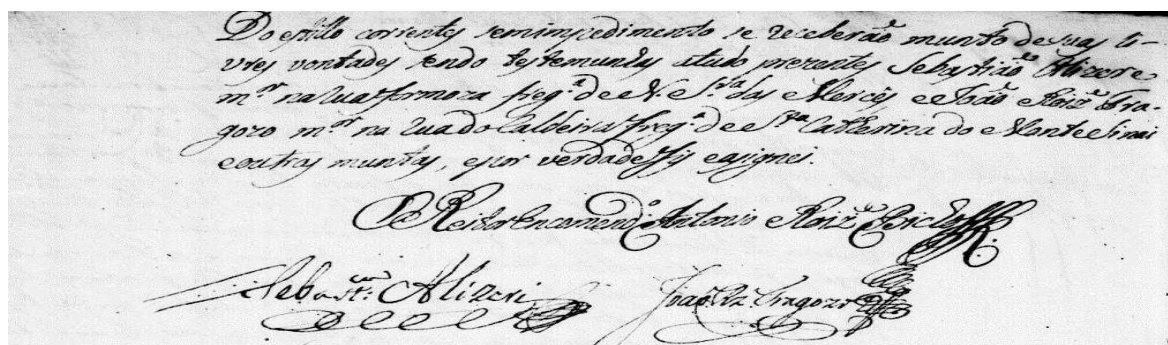 Do estillo correntes sem impedimento se receberão munto de suas li-
vres vontades sendo testemunhas a tudo prezentes Sebastião Alizere
m.or na Rua formoza freg.a de N. S.ra das Merces, e João Roiz Fra-
gozo m.or na Rua do Caldeira freg.a de S.ta Catherina do Monte Sinai
e outras muntas, e por verdade fis e asignei.
O P.e Reitor Encomend.o Antonio Roiz
Sebast.am Alizeri
João Fragozo